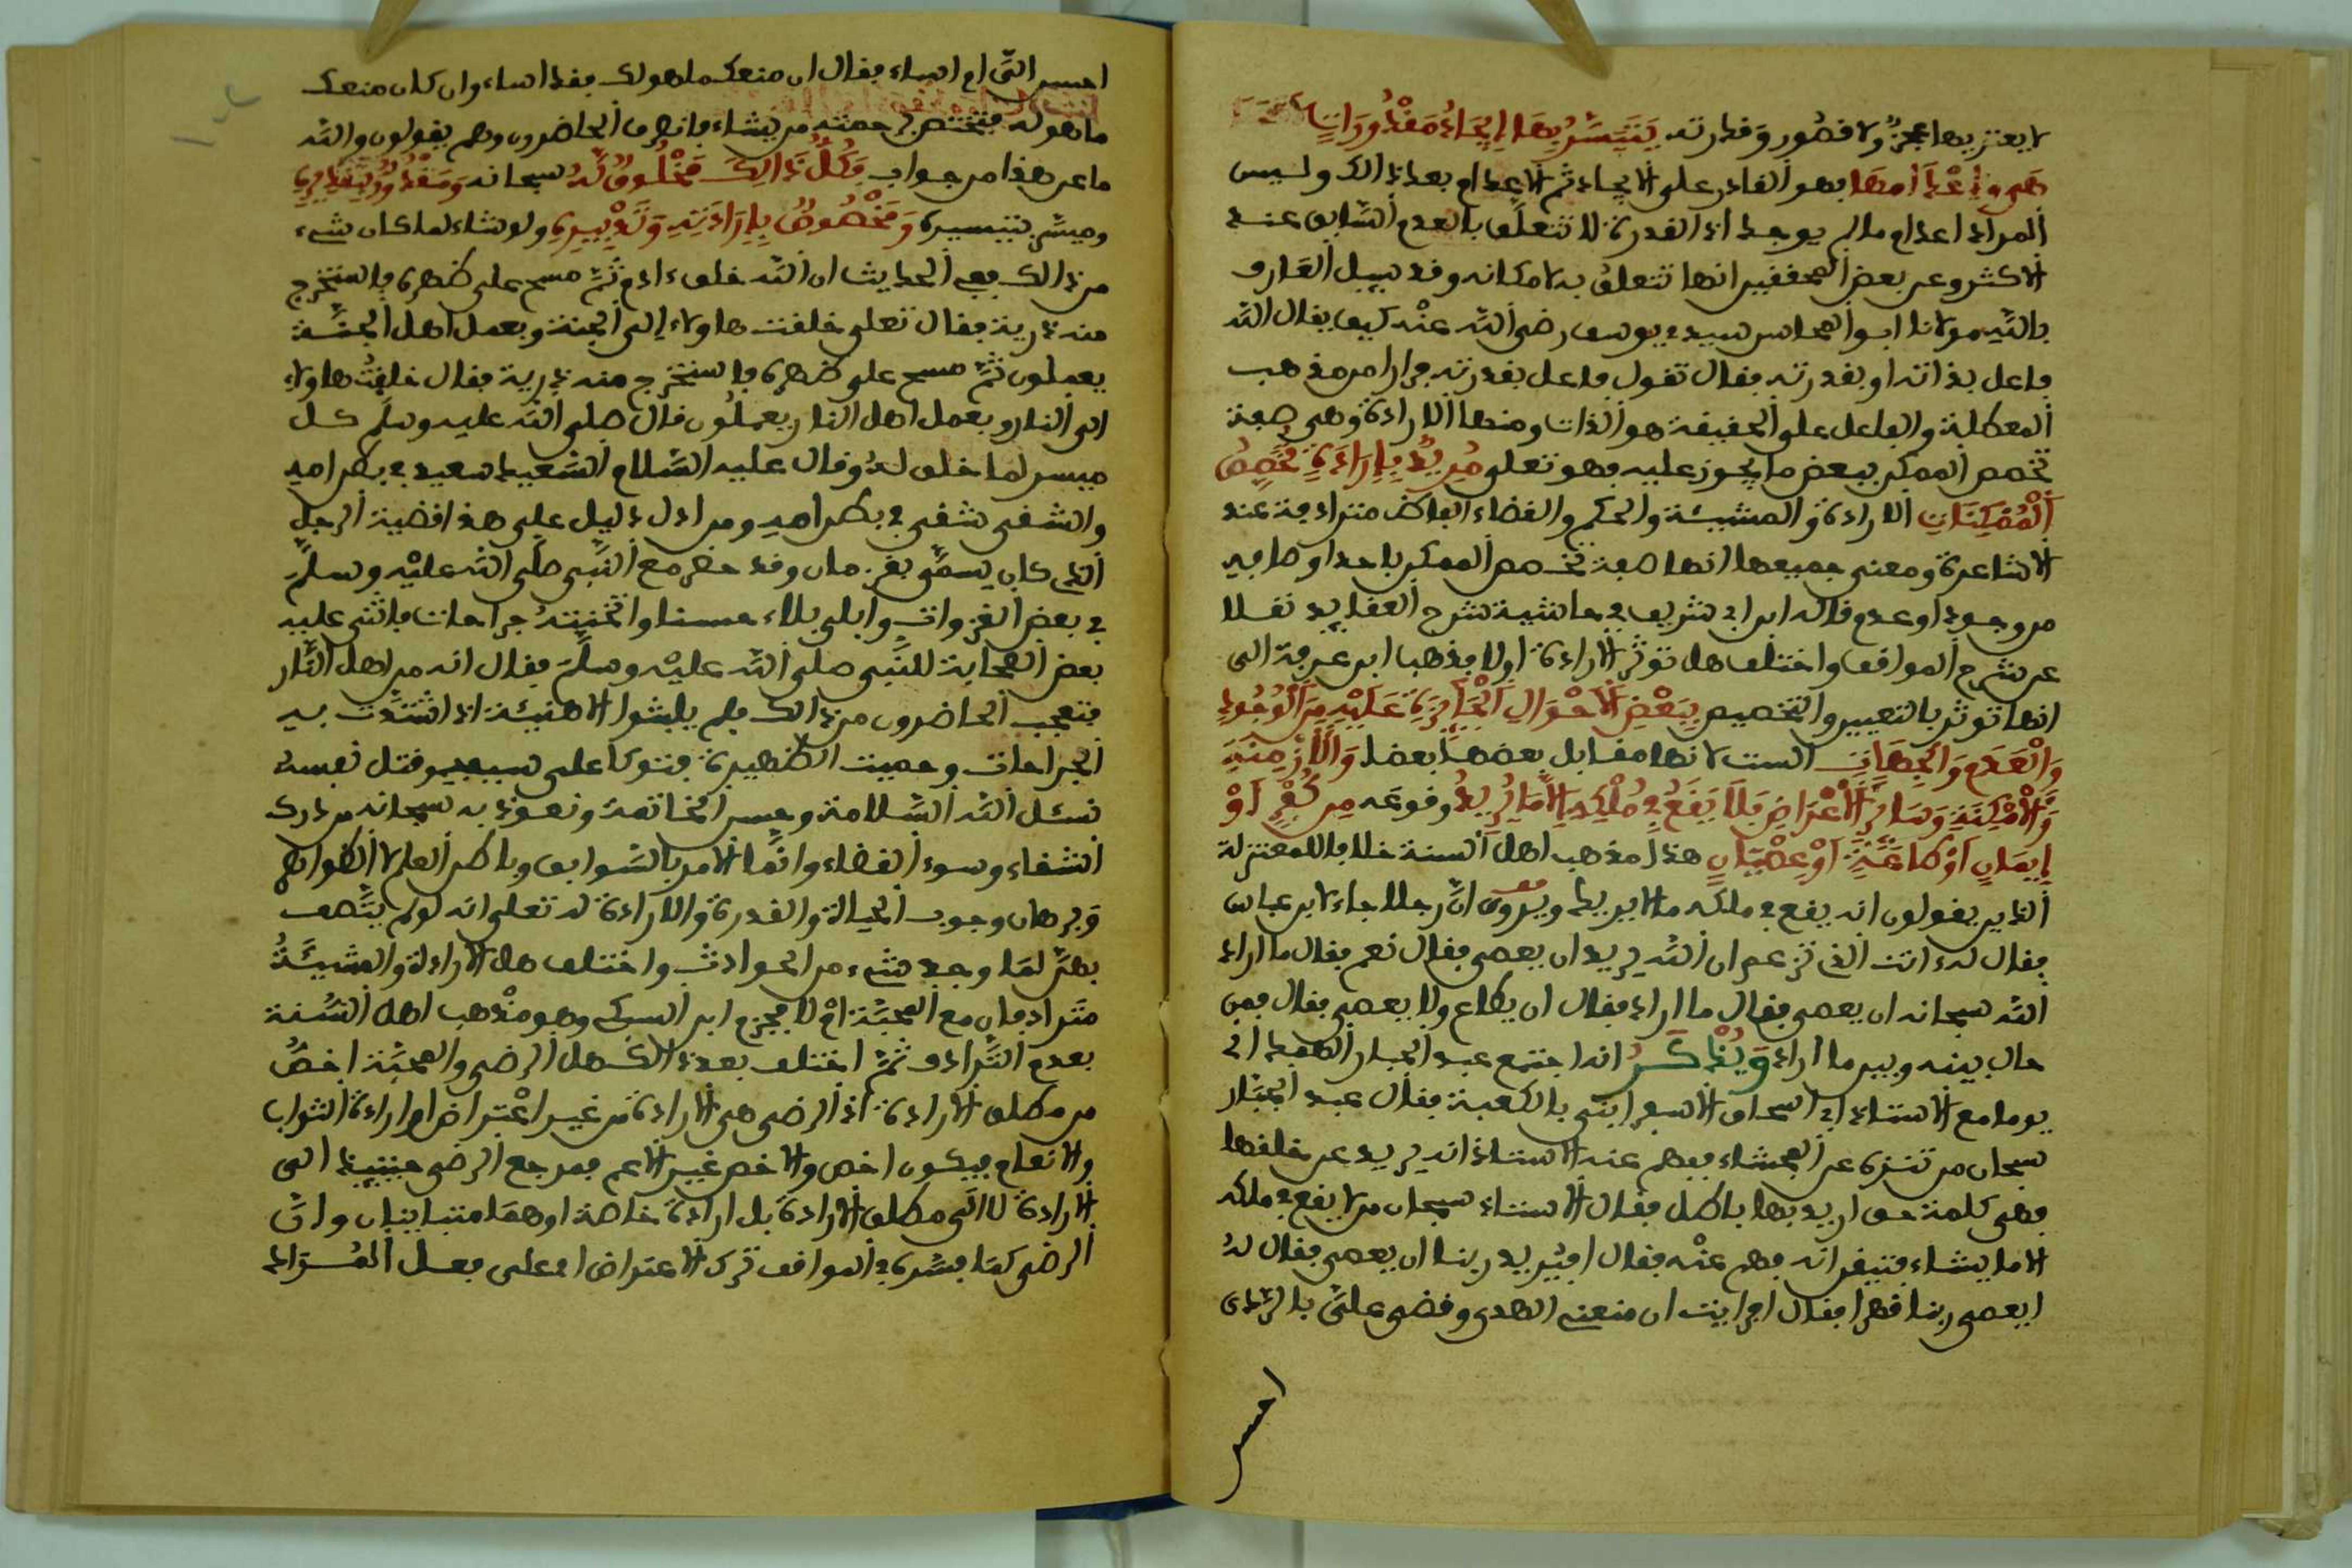 لا يعتريها عجز ولا قصور وقدرته يتيسر بها إيجاد مقدورات
هي وإعدامها فهو القادر على الايجاد ثم الاعدام بعد ذالك وليس
المراد اعدام ما لم يوجد اذ القدرة لا تتعلق بالعدم السابق عند
الاكثر وعن بعض المحققين انها تتعلق به لامكانه وقد سيل العارف
بالله مولانا ابو المحاسن سيدي يوسف رضي الله عنه كيف يقال الله
فاعل بذاته او بقدرته فقال تقول فاعل بقدرته فرارا من مذهب
المعطلة والفاعل على الحقيقة هو الذات ومنها الارادة وهي صفة
تخصص الممكن ببعض ما يجوز عليه فهو تعلى مريد بإرادة تخصص
الممكنات الارادة والمشيئة والحكم والقضاء الفاظ مترادفة عند
الاشاعرة ومعنى جميعها انها صفة تخصص الممكن باحد اوصافه
من وجود او عدم قاله ابن ابي شريف في حاشية شرح العقايد نقلا
عن شرح المواقف واختلف هل توثر الارادة اولا فذهب ابن عرفة الى
انها توثر بالتعيين والتخصيص ببعض الأحوال الجائزة عليه من الوجود
والعدم والجهات الست لانها مقابل بعضها بعضا والأزمنة
والأمكنة وسائر الأعراض فلا يقع في ملكه إلا ما يريد وقوعه من كفر أو
إيمان أو طاعة أو عصيان هذا مذهب اهل السنة خلافا للمعتزلة
الذين يقولون انه يقع في ملكه ما لا يريد ويروى ان رجلا جاء لابن عباس
فقال له ءانت الذي تزعم ان الله يريد ان يعصى فقال نعم فقال ما اراد
الله سبحانه ان يعصى فقال ما اراد فقال ان يطاع ولا يعصى فقال فمن
حال بينه وبين ما اراد ويذكر انه اجتمع عبد الجبار الهمداني
يوما مع الاستاذ ابي اسحاق الاسفرايني بالكعبة فقال عبد الجبار
سبحان من تنزه عن الفحشاء ففهم عنه الاستاذ انه يريد عن خلقها
فهي كلمة حق اريد بها باطل فقال الاستاذ سبحان من لا يقع في ملكه
الا ما يشاء فتيقن انه فهم عنه فقال افيريد ربنا ان يعصى فقال له
ايعصى ربنا قهرا فقال ارايت ان منعني الهدى وقضى علي بالردى
احسن
احسن الي ام اساء فقال ان منعك ما هو لك فقد اساء وان كان منعك
ما هو له فيختص برحمته من يشاء فانصرف الحاضرون وهم يقولون والله
ما عن هذا من جواب وكل ذالك مخلوق له سبحانه ومقدور بتقديره
وميسر بتيسيره ومخصوص بإرادته وتدبيره ولو شاء لما كان شيء
من ذالك ففي الحديث ان الله خلق ءادم ثم مسح على ظهره فاستخرج
منه ذرية فقال تعلى خلقت هاولاء إلى الجنة وبعمل اهل الجنة
يعملون ثم مسح على ظهره فاستخرج منه ذرية فقال خلقت هاولاء
الى النار وبعمل اهل النار يعملون قال صلى الله عليه وسلم كل
ميسر لما خلق له وقال عليه السلام السعيد سعيد في بطن امه
والشقي شقي في بطن امه ومن ادل دليل على هذا قضية الرجل
الذي كان يسمى بقزمان وقد حضر مع النبي صلى الله عليه وسلم
في بعض الغزوات وابلى بلاء حسنا واثخنته جراحات فاثنى عليه
بعض الصحابة للنبي صلى الله عليه وسلم فقال انه من اهل النار
فتعجب الحاضرون من ذالك فلم يلبثوا الا هنيئة اذ اشتدت به
الجراحات وحميت الظهيرة فتوكا على سيفه وقتل نفسه
نسئل الله السلامة وحسن الخاتمة ونعوذ به سبحانه من درك
الشقاء وسوء القضاء وانما الامر بالسوابق وباطن العلم لا الظواهر
وبرهان وجوب الحياة والقدرة والارادة له تعلى انه لو لم يتصف
بهن لما وجد شيء من الحوادث واختلف هل الارادة والمشيئة
مترادفان مع المحبة ام لا فجزم ابن السبكي وهو مذهب اهل السنة
بعدم الترادف ثم اختلف بعد ذالك هل الرضى والمحبة اخص
من مطلق الارادة اذ الرضى هي الارادة من غير اعتراض او ارادة الثواب
والانعام فيكون اخص والاخص غير الاعم فمرجع الرضى حينيذ الى
الارادة لا الى مطلق الارادة بل ارادة خاصة او هما متباينان وان
الرضى كما فسره في المواقف ترك الاعتراض اي على فعل المراد